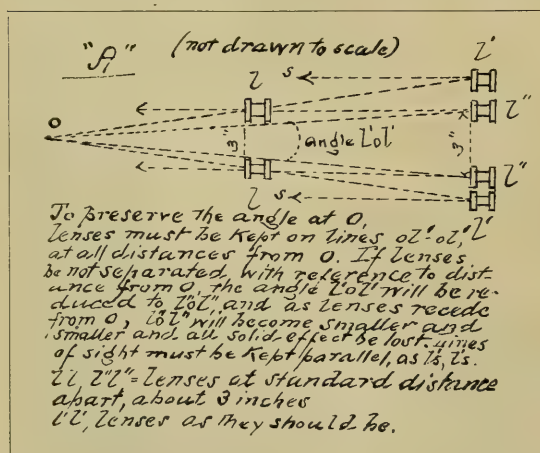 "A"
(not drawn to scale)
l l'
s
O l''
3" angle l'ol' 3"
l''
l s
l'
To preserve the angle at O,
lenses must be kept on lines ol'-ol',
at all distances from O. If lenses
be not separated, with reference to dist-
ance from O, the angle l'ol' will be re-
duced to l''ol'', and as lenses recede
from O, l''ol'' will become smaller and
smaller and all solid effect be lost. Lines
of sight must be kept parallel, as l's, l's.
ll, l''l''=lenses at standard distance
apart, about 3 inches
l'l', lenses as they should be.